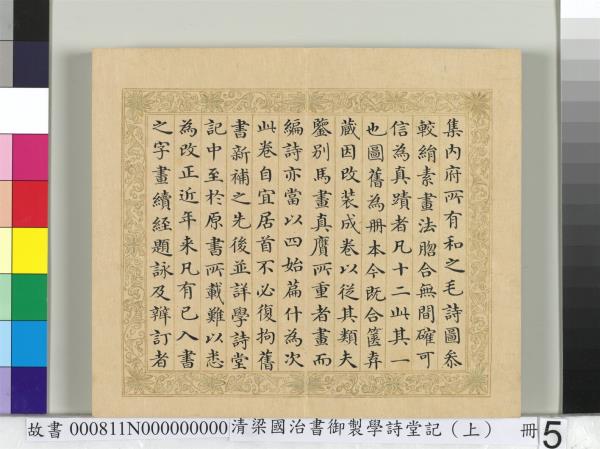 集內府所有和之毛詩圖叅
較絹素畫法脗合無間確可
信為真蹟者凡十二此其一
也圖舊為冊本今既合篋弆
藏因改裝成卷以從其類夫
鑒别馬畫真贗所重者畫而
編詩亦當以四始篇什為次
此卷自宜居首不必復拘舊
書新補之先後並詳學詩堂
記中至於原書所載難以悉
為改正近年来凡有已入書
之字畫續經題詠及辨訂者
故書 000811N000000000 清梁國治書御製學詩堂記（上） 冊 5